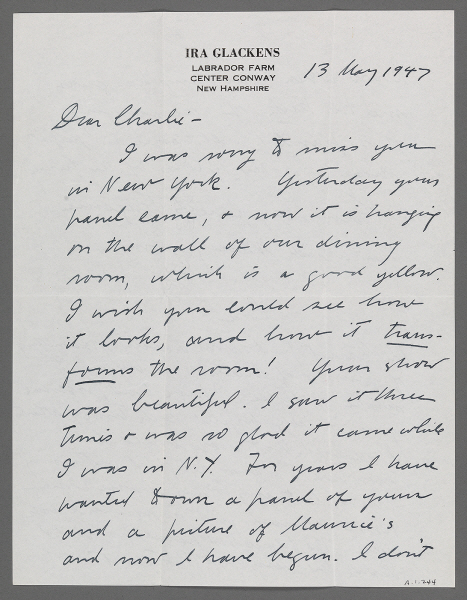 IRA GLACKENS
LABRADOR FARM
CENTER CONWAY
NEW HAMPSHIRE
13 May 1947
Dear Charlie —
I was sorry to miss you
in New York. Yesterday your
panel came, & now it is hanging
on the wall of our dining
room, which is a good yellow.
I wish you could see how
it looks, and how it trans-
forms the room! Your show
was beautiful. I saw it three
times & was so glad it came while
I was in N.Y. For years I have
wanted to own a panel of yours
and a picture of Maurice's
and now I have begun. I don't
A.1.244